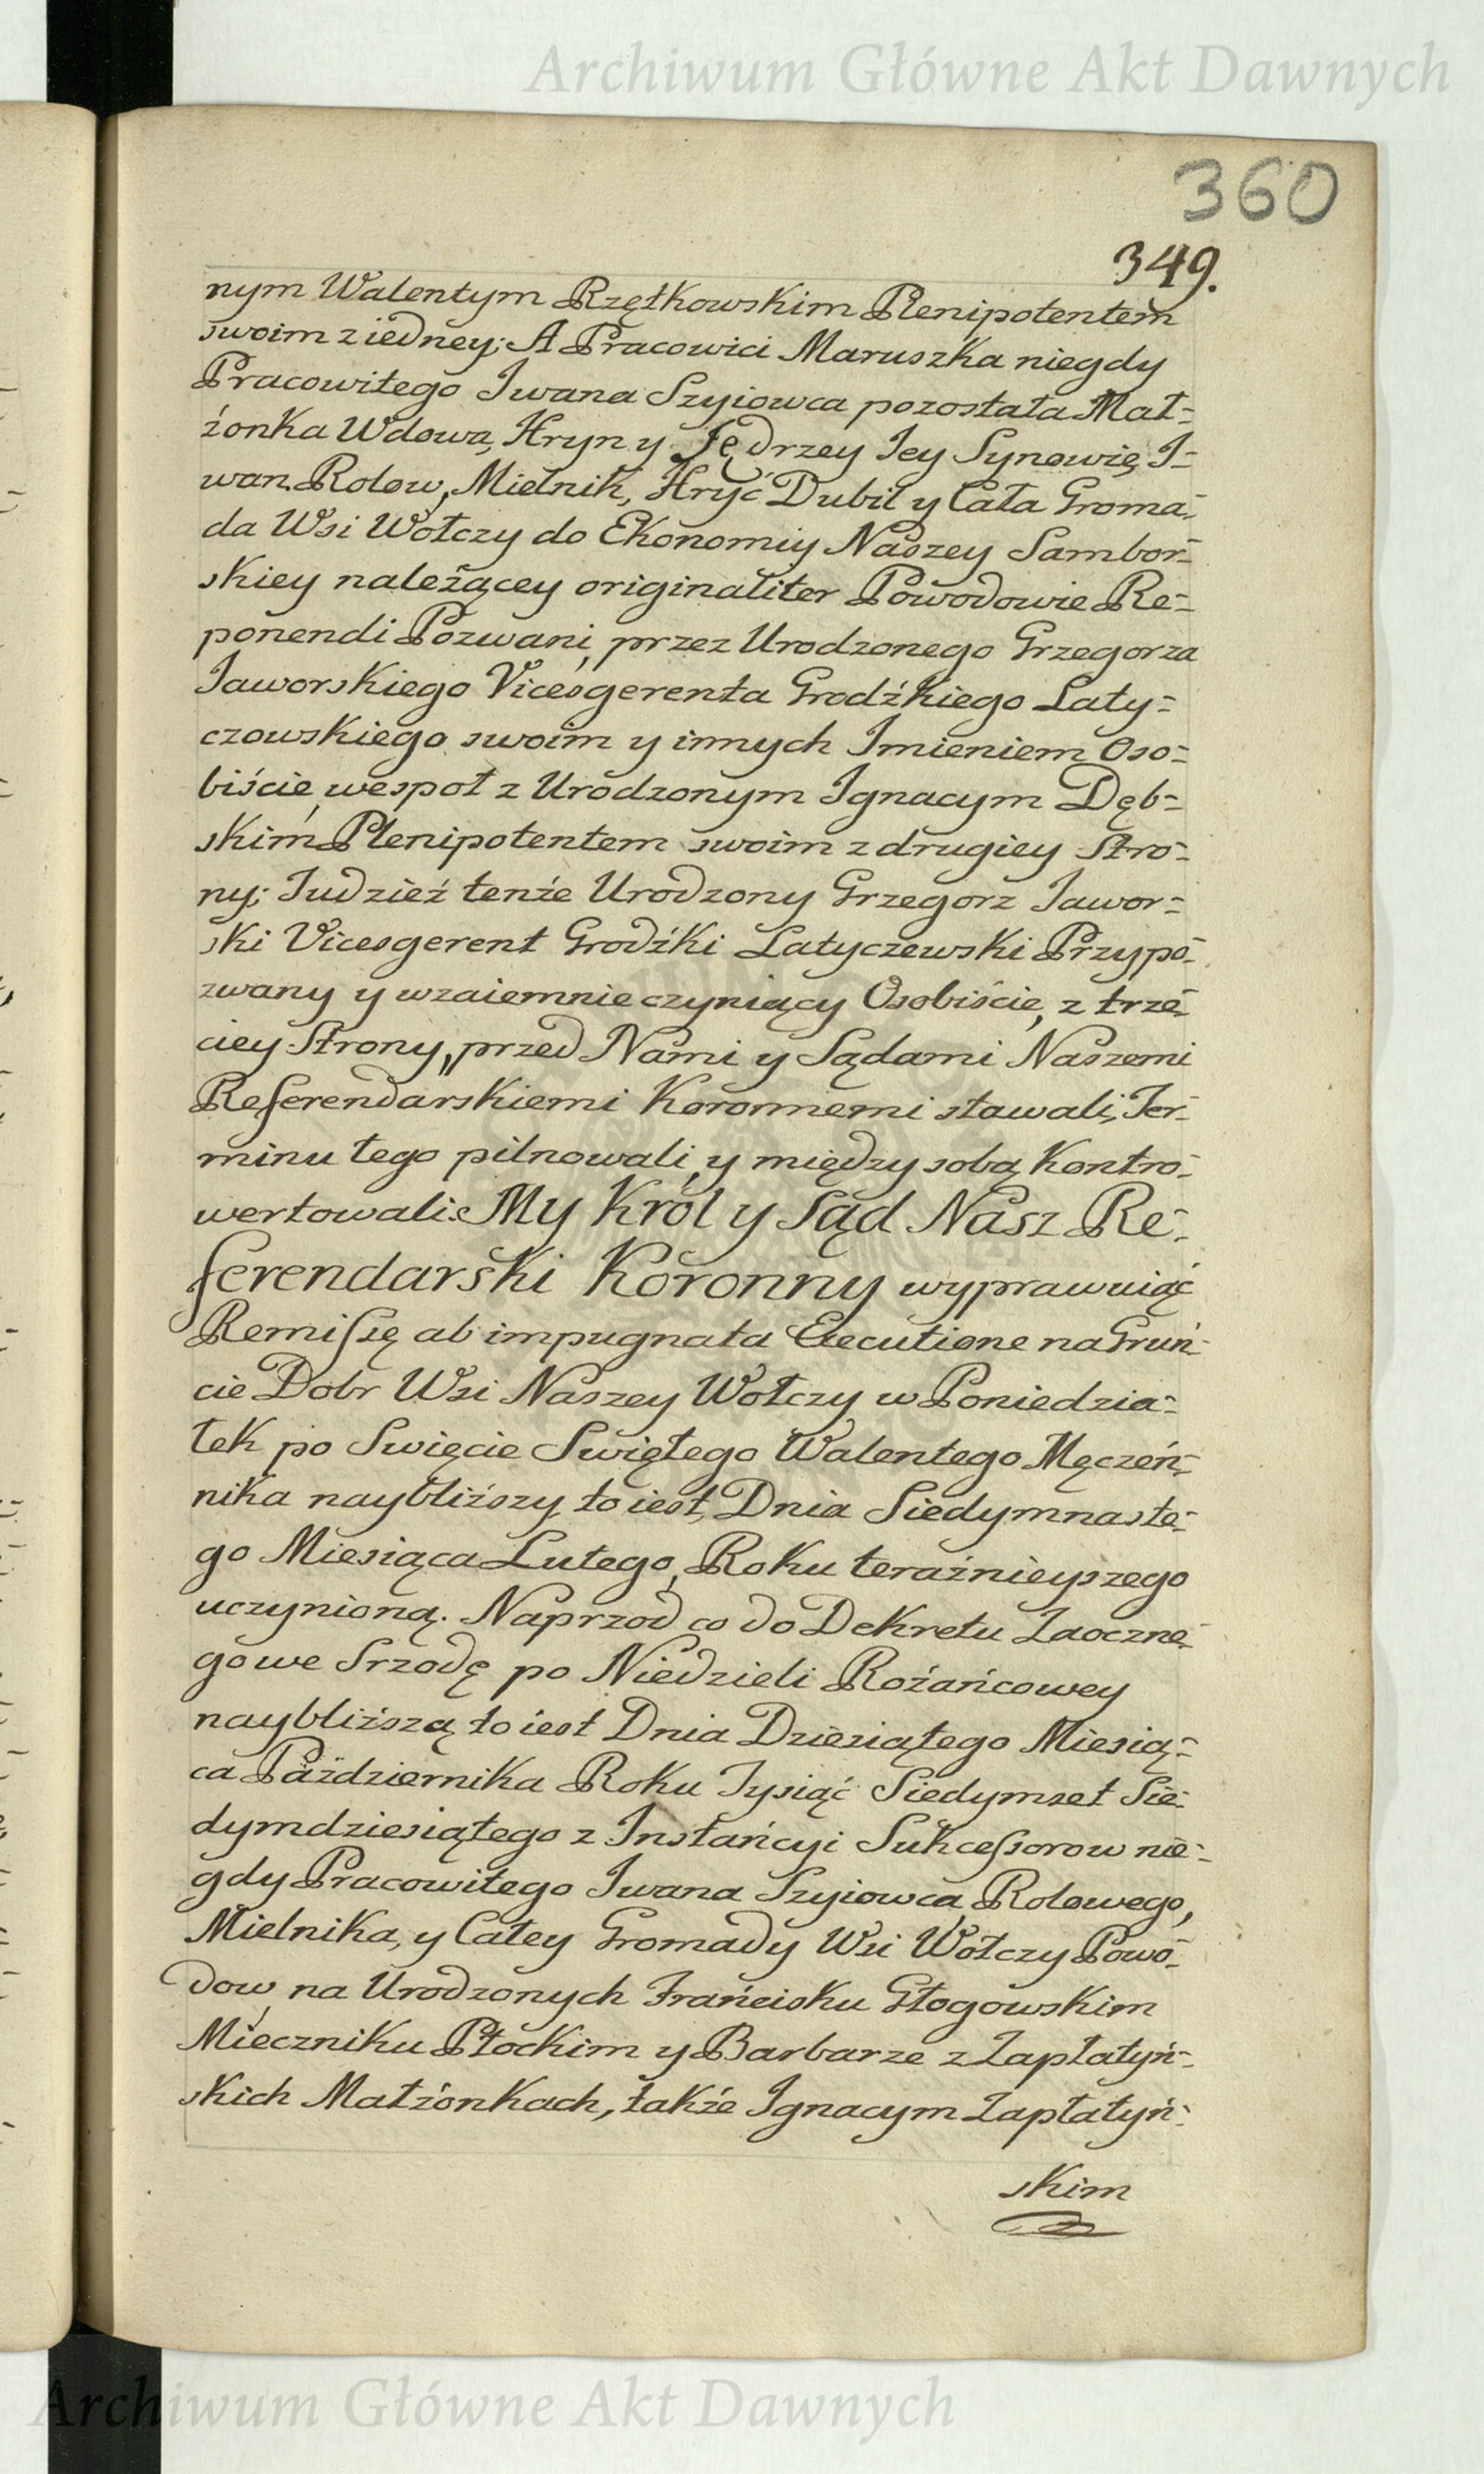 Archiwum Główne Akt Dawnych
360
349.
nym Walentym Rzętkowskim Plenipotentem
swoim z iedney; A Pracowici Maruszka niegdy
Pracowitego Iwana Szyiowca pozostała Mał-
żonka Wdowa, Hryn y Jędrzey Iey Synowie, I-
wan Rolow, Mielnik, Hryć Dubil y Cała Groma-
da Wsi Wołczy do Ekonomiy Naszey Sambor-
skiey należącey originaliter Powodowie Re-
ponendi Pozwani, przez Urodzonego Grzegorza
Jaworskiego Vicesgerenta Grodźkiego Laty-
czowskiego swoim y innych Imieniem Oso-
biście, wespoł z Urodzonym Ignacym Dęb-
skim Plenipotentem swoim z drugiey Stro-
ny; Tudzież tenże Urodzony Grzegorz Jawor-
ski Vicesgerent Grodźki Latyczewski Przypo-
zwany y wzaiemnie czyniący Osobiście, z trze-
ciey Strony, przed Nami y Sądami Naszemi
Referendarskiemi Koronnemi stawali, Ter-
minu tego pilnowali, y między sobą Kontro-
wertowali: My Król y Sąd Nasz Re-
ferendarski Koronny wyprawuiąć
Remissię ab impugnata Executione na Gruń-
cie Dobr Wsi Naszey Wołczy w Poniedzia-
łek po Swięcie Swiętego Walentego Męczeń-
nika naybliższy to iest, Dnia Siedymnaste-
go Miesiąca Lutego, Roku teraźnieyszego
uczynioną. Naprzod co do Dekretu Zaoczne-
go we Srzodę po Niedzieli Rożańcowey
naybliższą to iest Dnia Dziesiątego Miesią-
ca Października Roku Tysiąć Siedymset Sie-
dymdziesiątego z Instańcyi Sukcessorow nie-
gdy Pracowitego Iwana Szyiowca, Rolowego,
Mielnika, y Całey Gromady Wsi Wołczy Powo-
dow, na Urodzonych Frańcisku Głogowskim
Mieczniku Płockim y Barbarze z Zapłatyń-
skich Małżonkach, także Ignacym Zapłatyń-
skim
Archiwum Główne Akt Dawnych